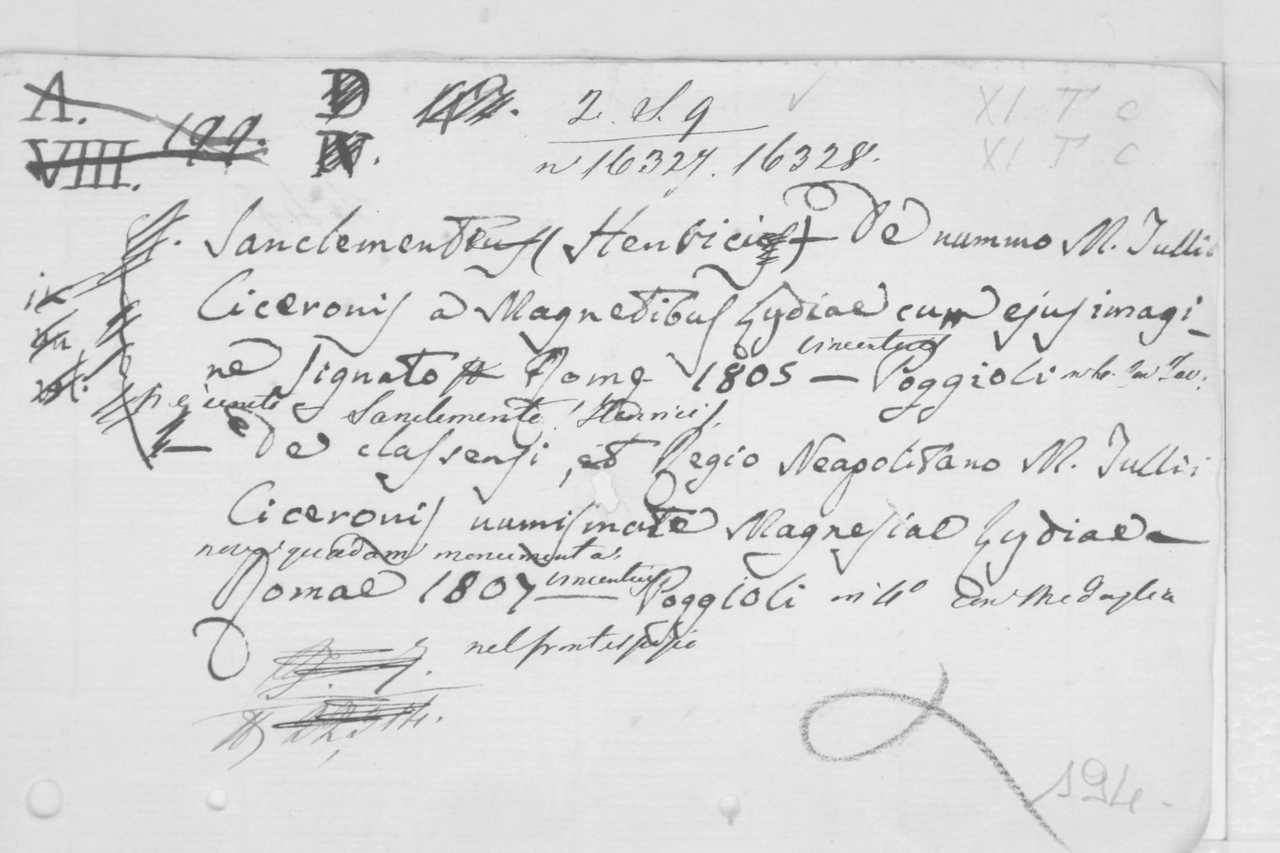 A. 199. D
VIII. IV.
2. S. 9
n 16327. 16328.
XI T C
XI T C
Sanclementius (Henrici) De nummo M. Tullii
Ciceronis a Magnetibus Lydiae cum ejus imagi-
ne signato Romę 1805 — Vincentius Poggioli in 4o
Sanclemente Henrici
— De classensi, et Regio Neapolitano M. Tullii
Ciceronis numismate Magnesiae Lydiae —
nova quaedam monumenta
Romae 1807 Vincentius Poggioli in 4o con Medaglia
nel frontespizio
194.